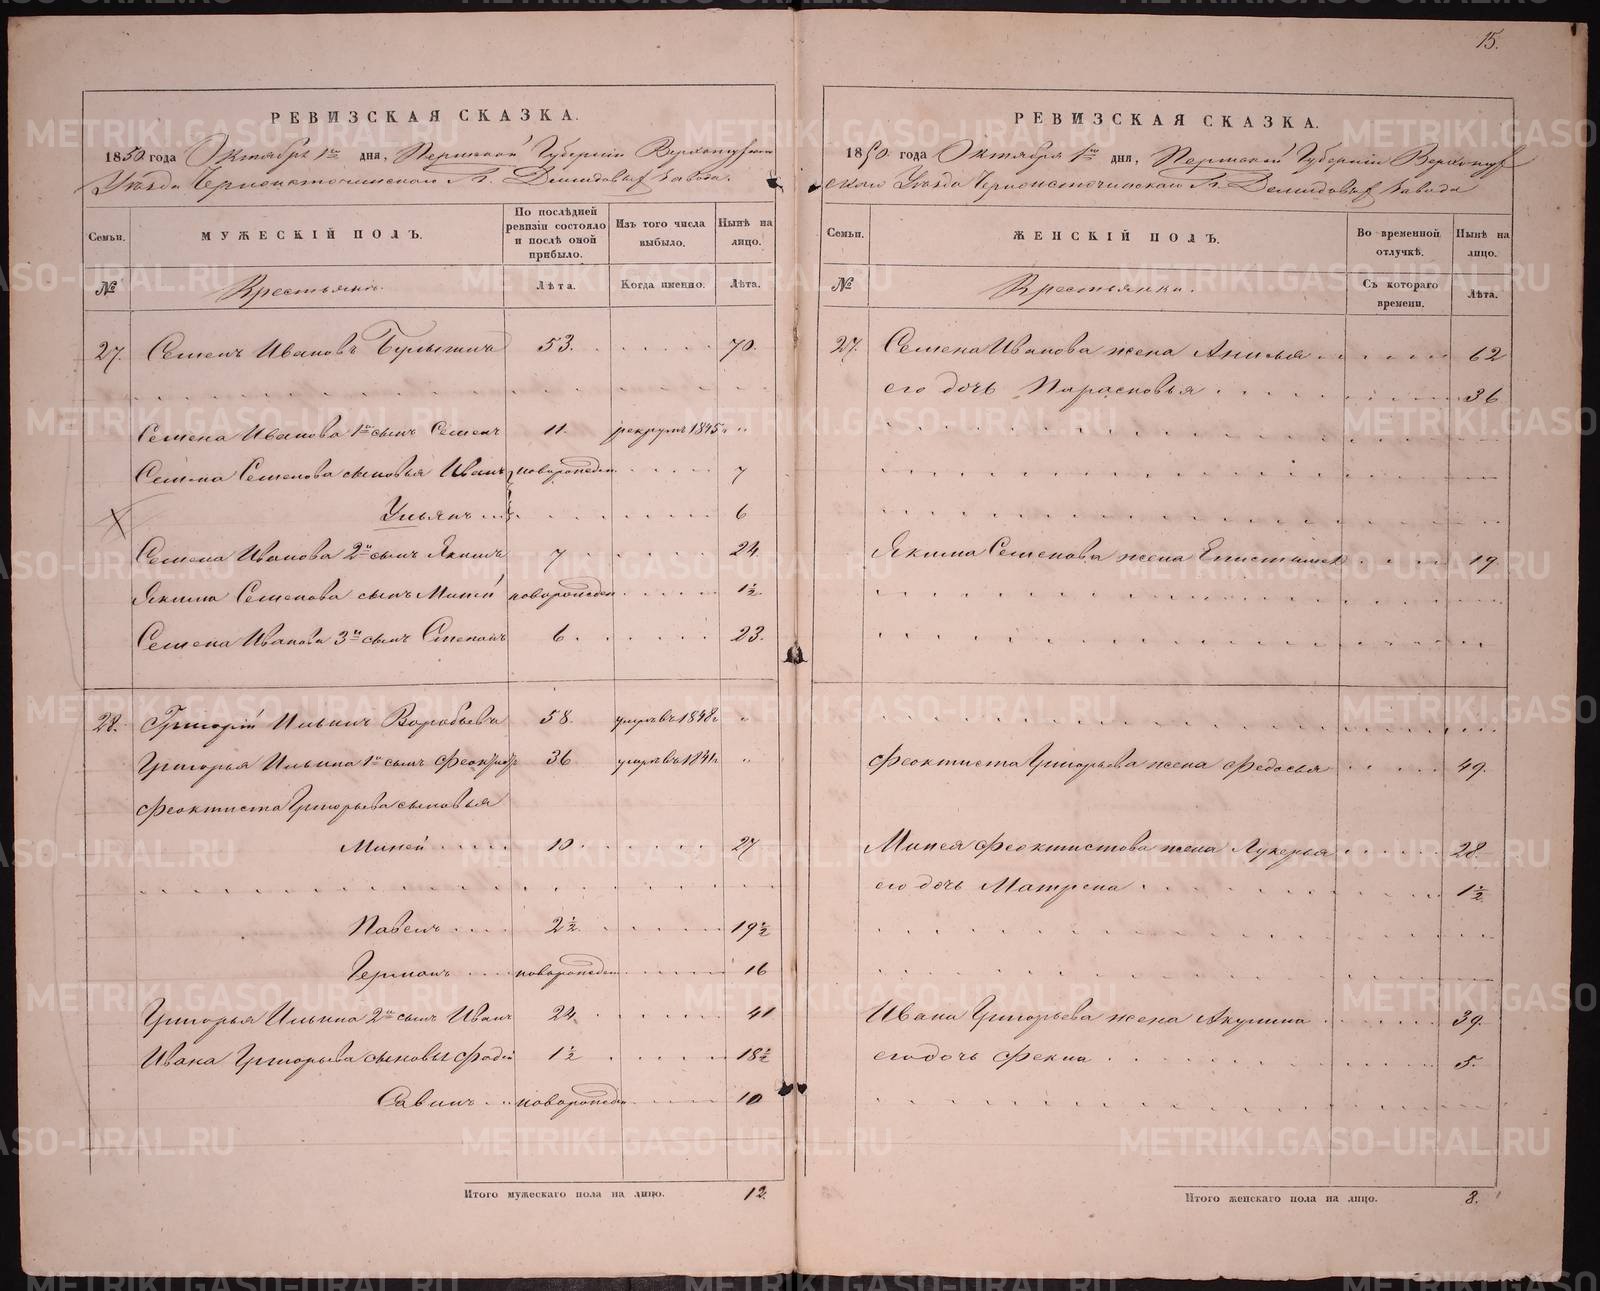 15.
РЕВИЗСКАЯ СКАЗКА.
1850 года Октября 1го дня, Пермской Губерніи Верхотурскаго
Уѣзда Черноисточинскаго Гг. Демидовыхъ завода.
Семьи.
МУЖЕСКІЙ ПОЛЪ.
По послѣдней ревизіи состояло и послѣ оной прибыло.
Изъ того числа выбыло.
Нынѣ на лицо.
№
Крестьянъ.
Лѣта.
Когда именно.
Лѣта.
27. Семенъ Ивановъ Булыгинъ 53. 70.
Семена Иванова 1й сынъ Семенъ 11. рекрутъ 1845г "
Семена Семенова сыновья Иванъ новорожден 7
Ульянъ 6
Семена Иванова 2й сынъ Якимъ 7 24
Якима Семенова сынъ Миней новорожден 1½.
Семена Иванова 3й сынъ Степанъ 6. 23.
28. Григорій Ильинъ Воробьевъ 58. умръ въ 1848г "
Григорья Ильина 1й сынъ Феоктистъ 36 умръ въ 1841г "
Феоктиста Григорьева сыновья
Миней 10. 27
Павелъ 2½. 19½
Германъ новорожден 16
Григорья Ильина 2й сынъ Иванъ 24 41
Ивана Григорьева сыновья Фадей 1½ 18½
Савинъ новорожден 10
Итого мужескаго пола на лицо. 12.
РЕВИЗСКАЯ СКАЗКА.
1850 года Октября 1го дня, Пермской Губерніи Верхотур
скаго Уѣзда Черноисточинскаго Гг. Демидовыхъ завода
Семьи.
ЖЕНСКІЙ ПОЛЪ.
Во временной отлучкѣ.
Нынѣ на лицо.
№
Крестьянки.
Съ котораго времени.
Лѣта.
27. Семена Иванова жена Анисья 62
его дочь Парасковья 36
Якима Семенова жена Епистимея 19
Феоктиста Григорьева жена Федосья 49.
Минея Феоктистова жена Лукерья 28.
его дочь Матрена 1½
Ивана Григорьева жена Акулина 39.
его дочь Фекла 5.
Итого женскаго пола на лицо. 8.
METRIKI.GASO-URAL.RU